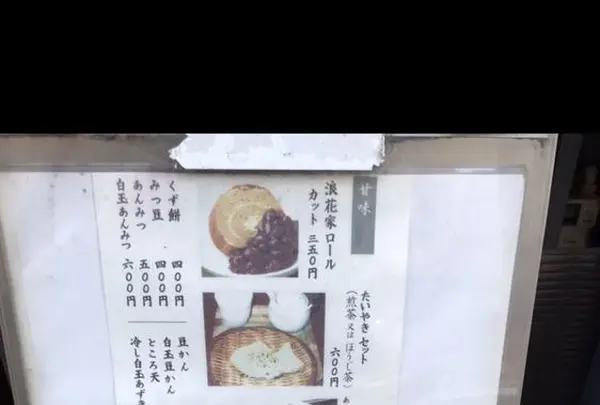 甘味
浪花家ロール
カット 三五〇円
たいやきセット
(煎茶又はほうじ茶)
六〇〇円
くず餅 四〇〇円
みつ豆 四〇〇円
あんみつ 五〇〇円
白玉あんみつ 六〇〇円
豆かん
白玉豆かん
ところ天
冷し白玉あずき